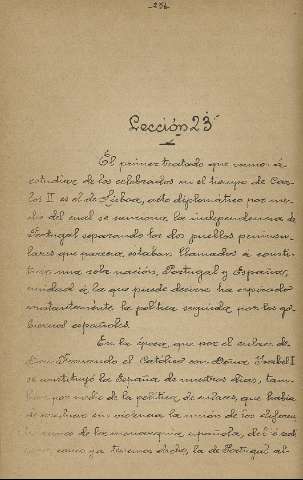 Lección 23
El primer tratado que vamos á
estudiar de los celebrados en el tiempo de Car-
los II es el de Lisboa, acto diplomático por me-
dio del cual se sanciona la independencia de
Portugal separando los dos pueblos peninsu-
lares que parecia estaban llamados á consti-
tuir una sola nación, Portugal y España,
unidad á la que puede decirse ha aspirado
constantemente la política seguida por los go-
biernos españoles.
En la época, que por el enlace de
Don Fernando el Católico con Doña Isabel I
se constituyó la España de nuestros días, tam-
bien por medio de la política de enlaces, que había
de sin violencia la unión de los diferen
tes reinos de la monarquía española,
como ya tenemos dicho, la de Portugal al-